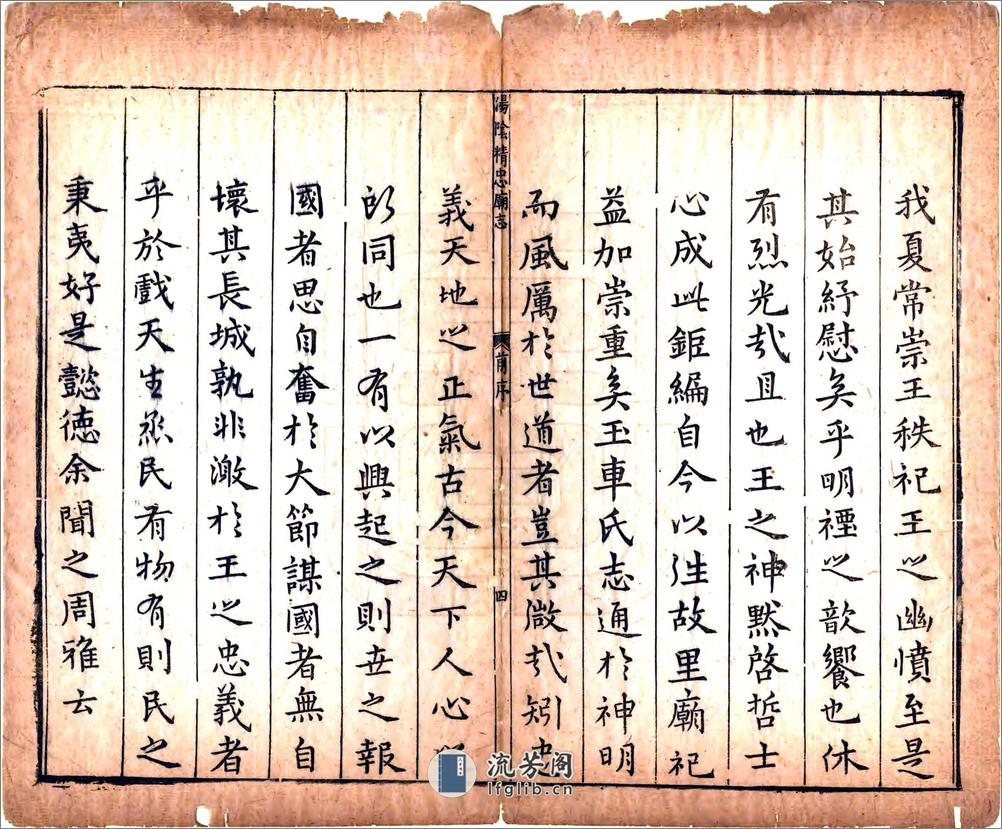 我夏常崇王秩祀王之幽憤至是
其始紓慰矣乎明禋之歆饗也休
有烈光哉且也王之神默啓哲士
心成此鉅編自今以往故里廟祀
益加崇重矣玉車氏志通於神明
而風厲於世道者豈其微哉矧忠
湯陰精忠廟志
前序
四
義天地之正氣古今天下人心
所同也一有以興起之則世之報
國者思自奮於大節謀國者無自
壞其長城孰非激於王之忠義者
乎於戲天生烝民有物有則民之
秉夷好是懿德余聞之周雅云
流芳阁
lfglib.cn